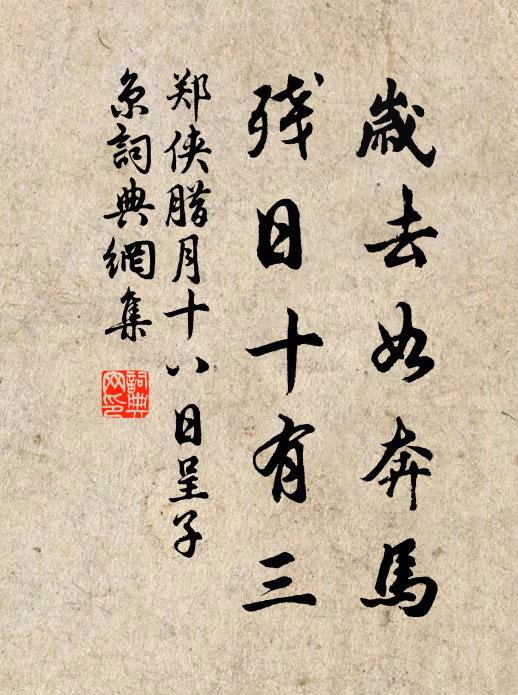 歲去如奔馬
殘日十有三
郑侠腊月十八日呈子
京詞典網集
詞典
网印